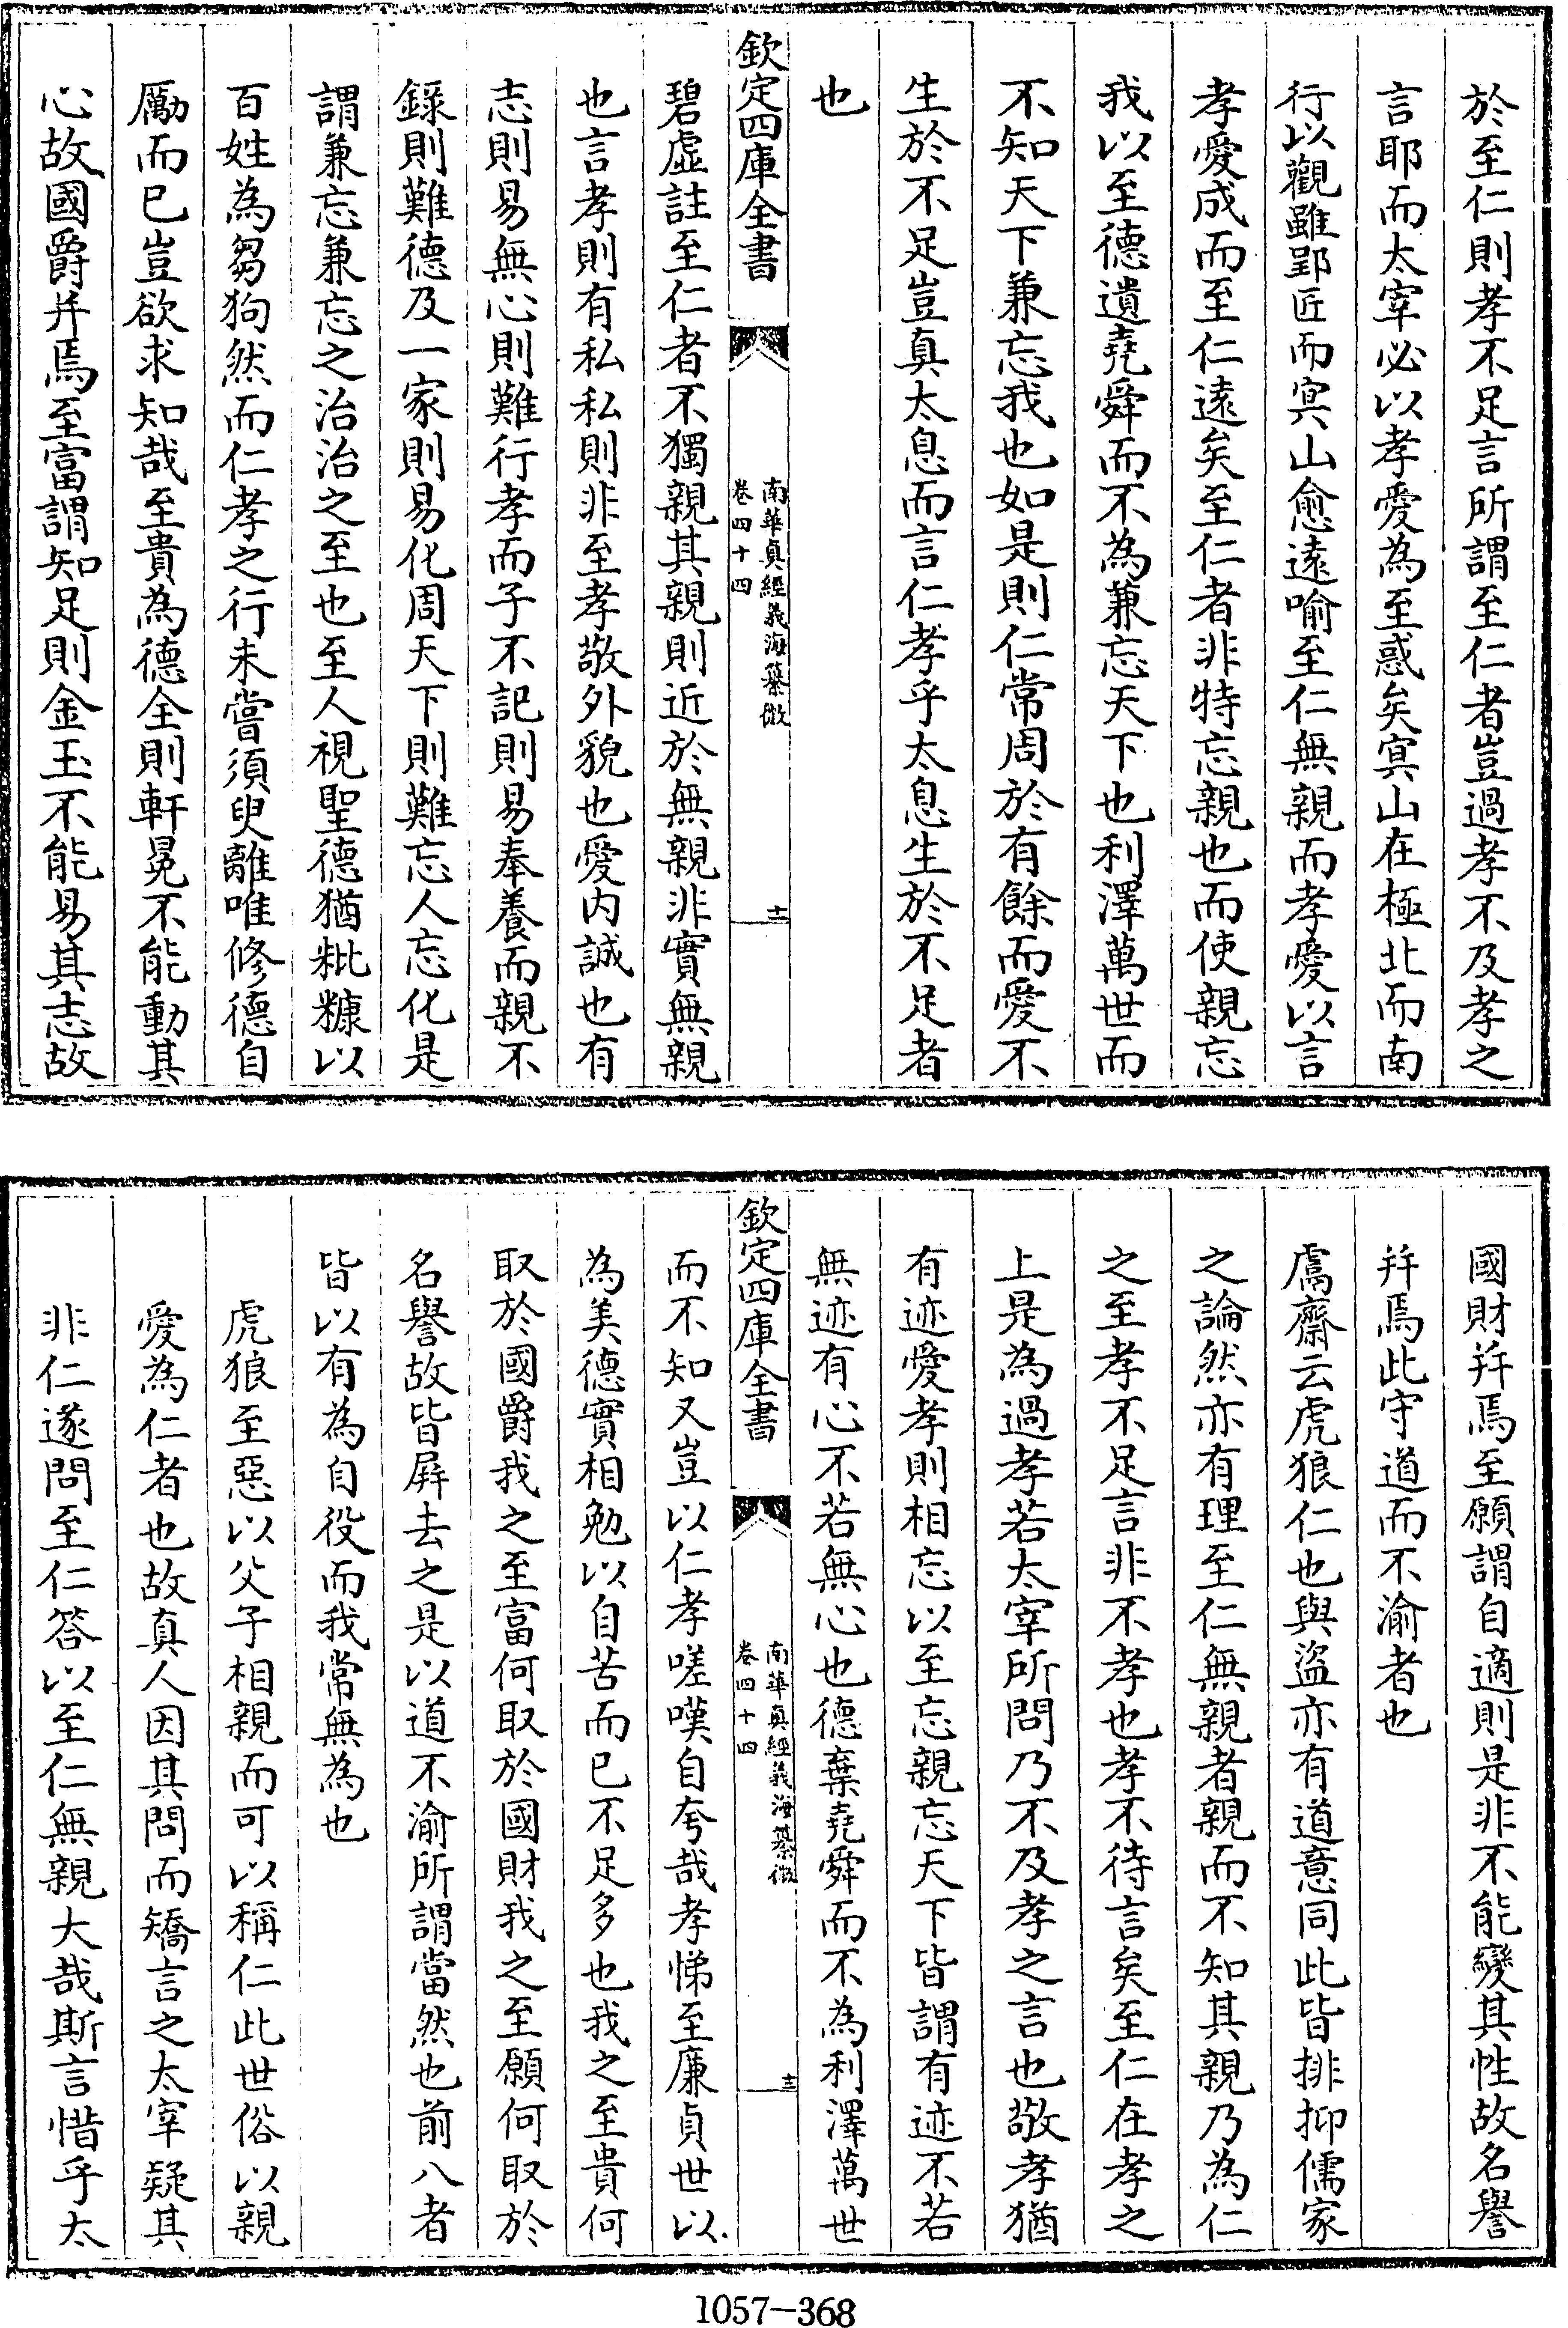 於至仁則孝不足言所謂至仁者豈過孝不及孝之
言耶而太宰必以孝愛為至惑矣冥山在極北而南
行以觀雖郢匠而冥山愈遠喻至仁無親而孝愛以言
孝愛成而至仁遠矣至仁者非特忘親也而使親忘
我以至德遺堯舜而不為兼忘天下也利澤萬世而
不知天下兼忘我也如是則仁常周於有餘而愛不
生於不足豈真太息而言仁孝乎太息生於不足者
也
欽定四庫全書
南華真經義海纂微
卷四十四
十二
碧虛註至仁者不獨親其親則近於無親非實無親
也言孝則有私私則非至孝敬外貌也愛内誠也有
志則易無心則難行孝而子不記則易奉養而親不
錄則難德及一家則易化周天下則難忘人忘化是
謂兼忘兼忘之治治之至也至人視聖德猶粃糠以
百姓為芻狗然而仁孝之行未嘗須臾離唯修德自
勵而已豈欲求知哉至貴為德全則軒冕不能動其
心故國爵并焉至富謂知足則金玉不能易其志故
國財并焉至願謂自適則是非不能變其性故名譽
并焉此守道而不渝者也
鬳齋云虎狼仁也與盜亦有道意同此皆排抑儒家
之論然亦有理至仁無親者親而不知其親乃為仁
之至孝不足言非不孝也孝不待言矣至仁在孝之
上是為過孝若太宰所問乃不及孝之言也敬孝猶
有迹愛孝則相忘以至忘親忘天下皆謂有迹不若
無迹有心不若無心也德棄堯舜而不為利澤萬世
欽定四庫全書
南華真經義海纂微
卷四十四
十三
而不知又豈以仁孝嗟嘆自夸哉孝悌至廉貞世以
為美德實相勉以自苦而已不足多也我之至貴何
取於國爵我之至富何取於國財我之至願何取於
名譽故皆屏去之是以道不渝所謂當然也前八者
皆以有為自役而我常無為也
虎狼至惡以父子相親而可以稱仁此世俗以親
愛為仁者也故真人因其問而矯言之太宰疑其
非仁遂問至仁答以至仁無親大哉斯言惜乎太
1057-368